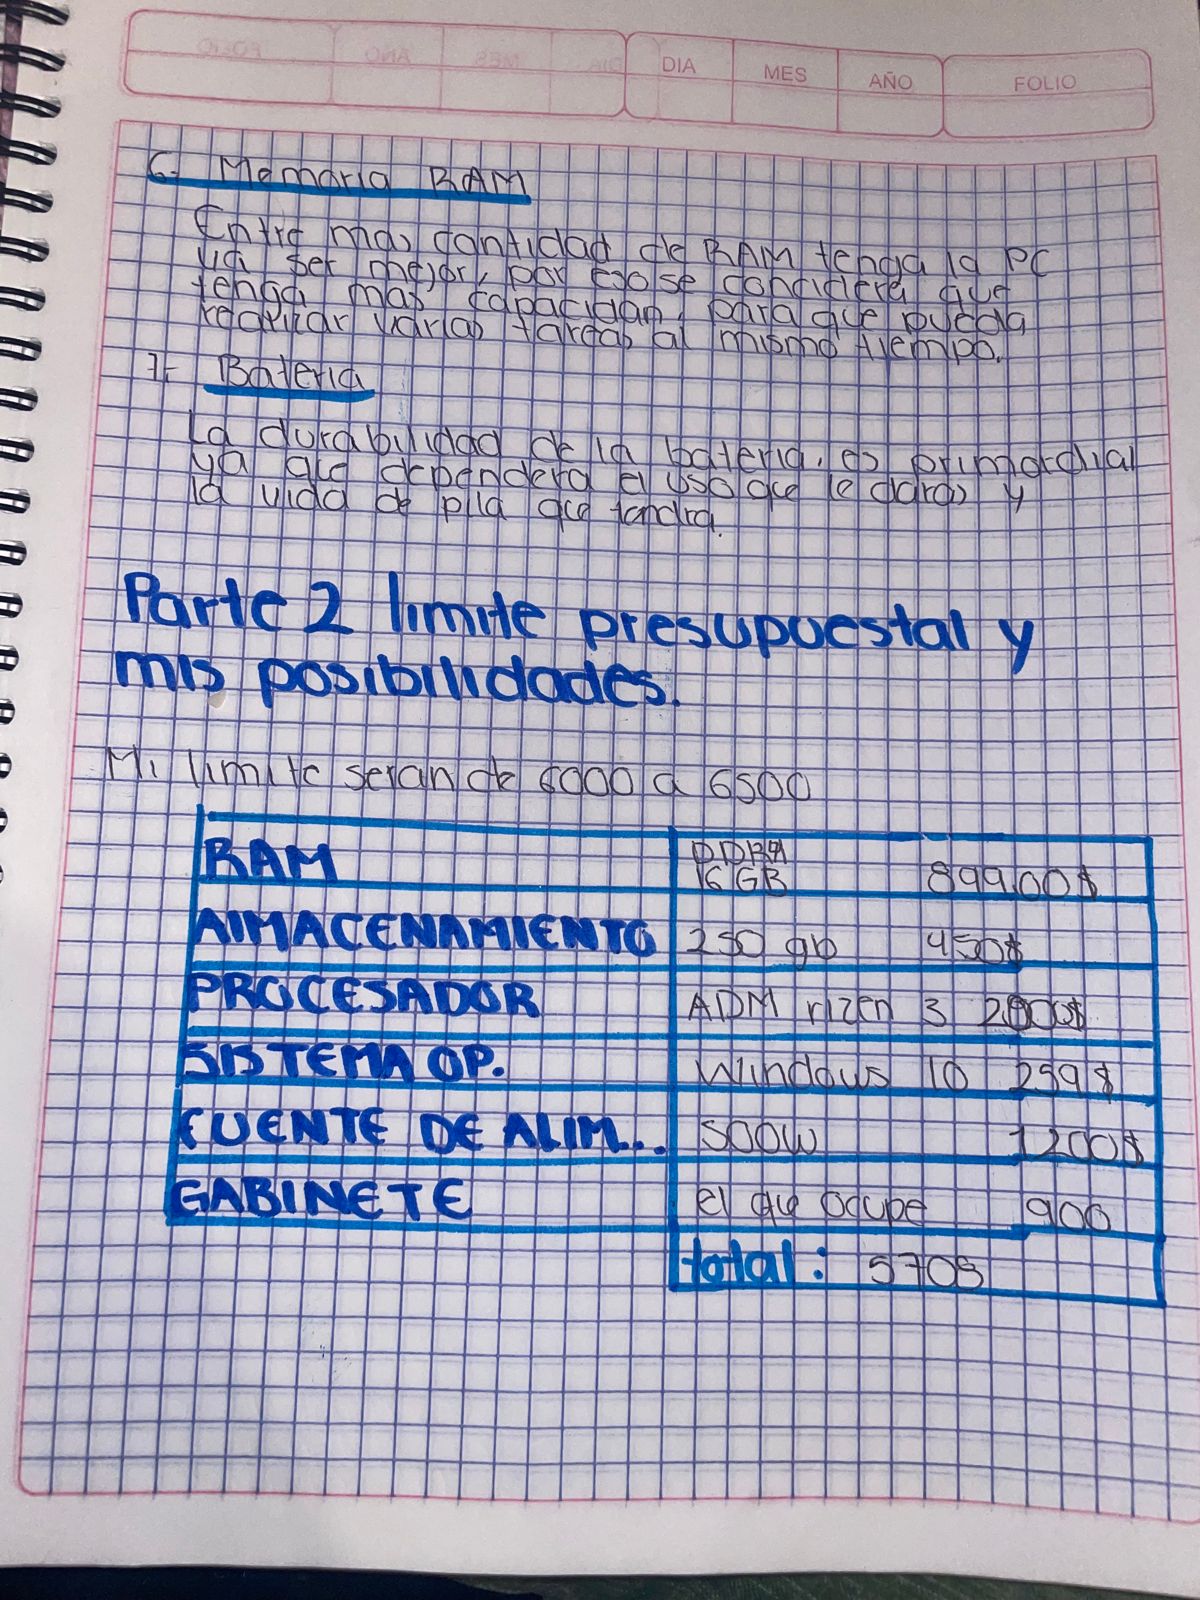 DIA MES AÑO FOLIO
6.- Memoria RAM
Entre mas cantidad de RAM tenga la PC
va ser mejor, por eso se concidera que
tenga mas capacidan, para que pueda
realizar varias tareas al mismo tiempo.
7.- Bateria
La durabilidad de la bateria, es primordial
ya que dependera el uso que le daras y
la vida de pila que tendra.
Parte 2 limite presupuestal y
mis posibilidades.
Mi limite seran de 6000 a 6500
RAM DDR4 16 GB 899.00$
AlMACENAMIENTO 250 gb 450$
PROCESADOR ADM rizen 3 2000$
SISTEMA OP. Windows 10 259$
FUENTE DE ALIM... 500W 1200$
GABINETE el que ocupe 900
total: 5708